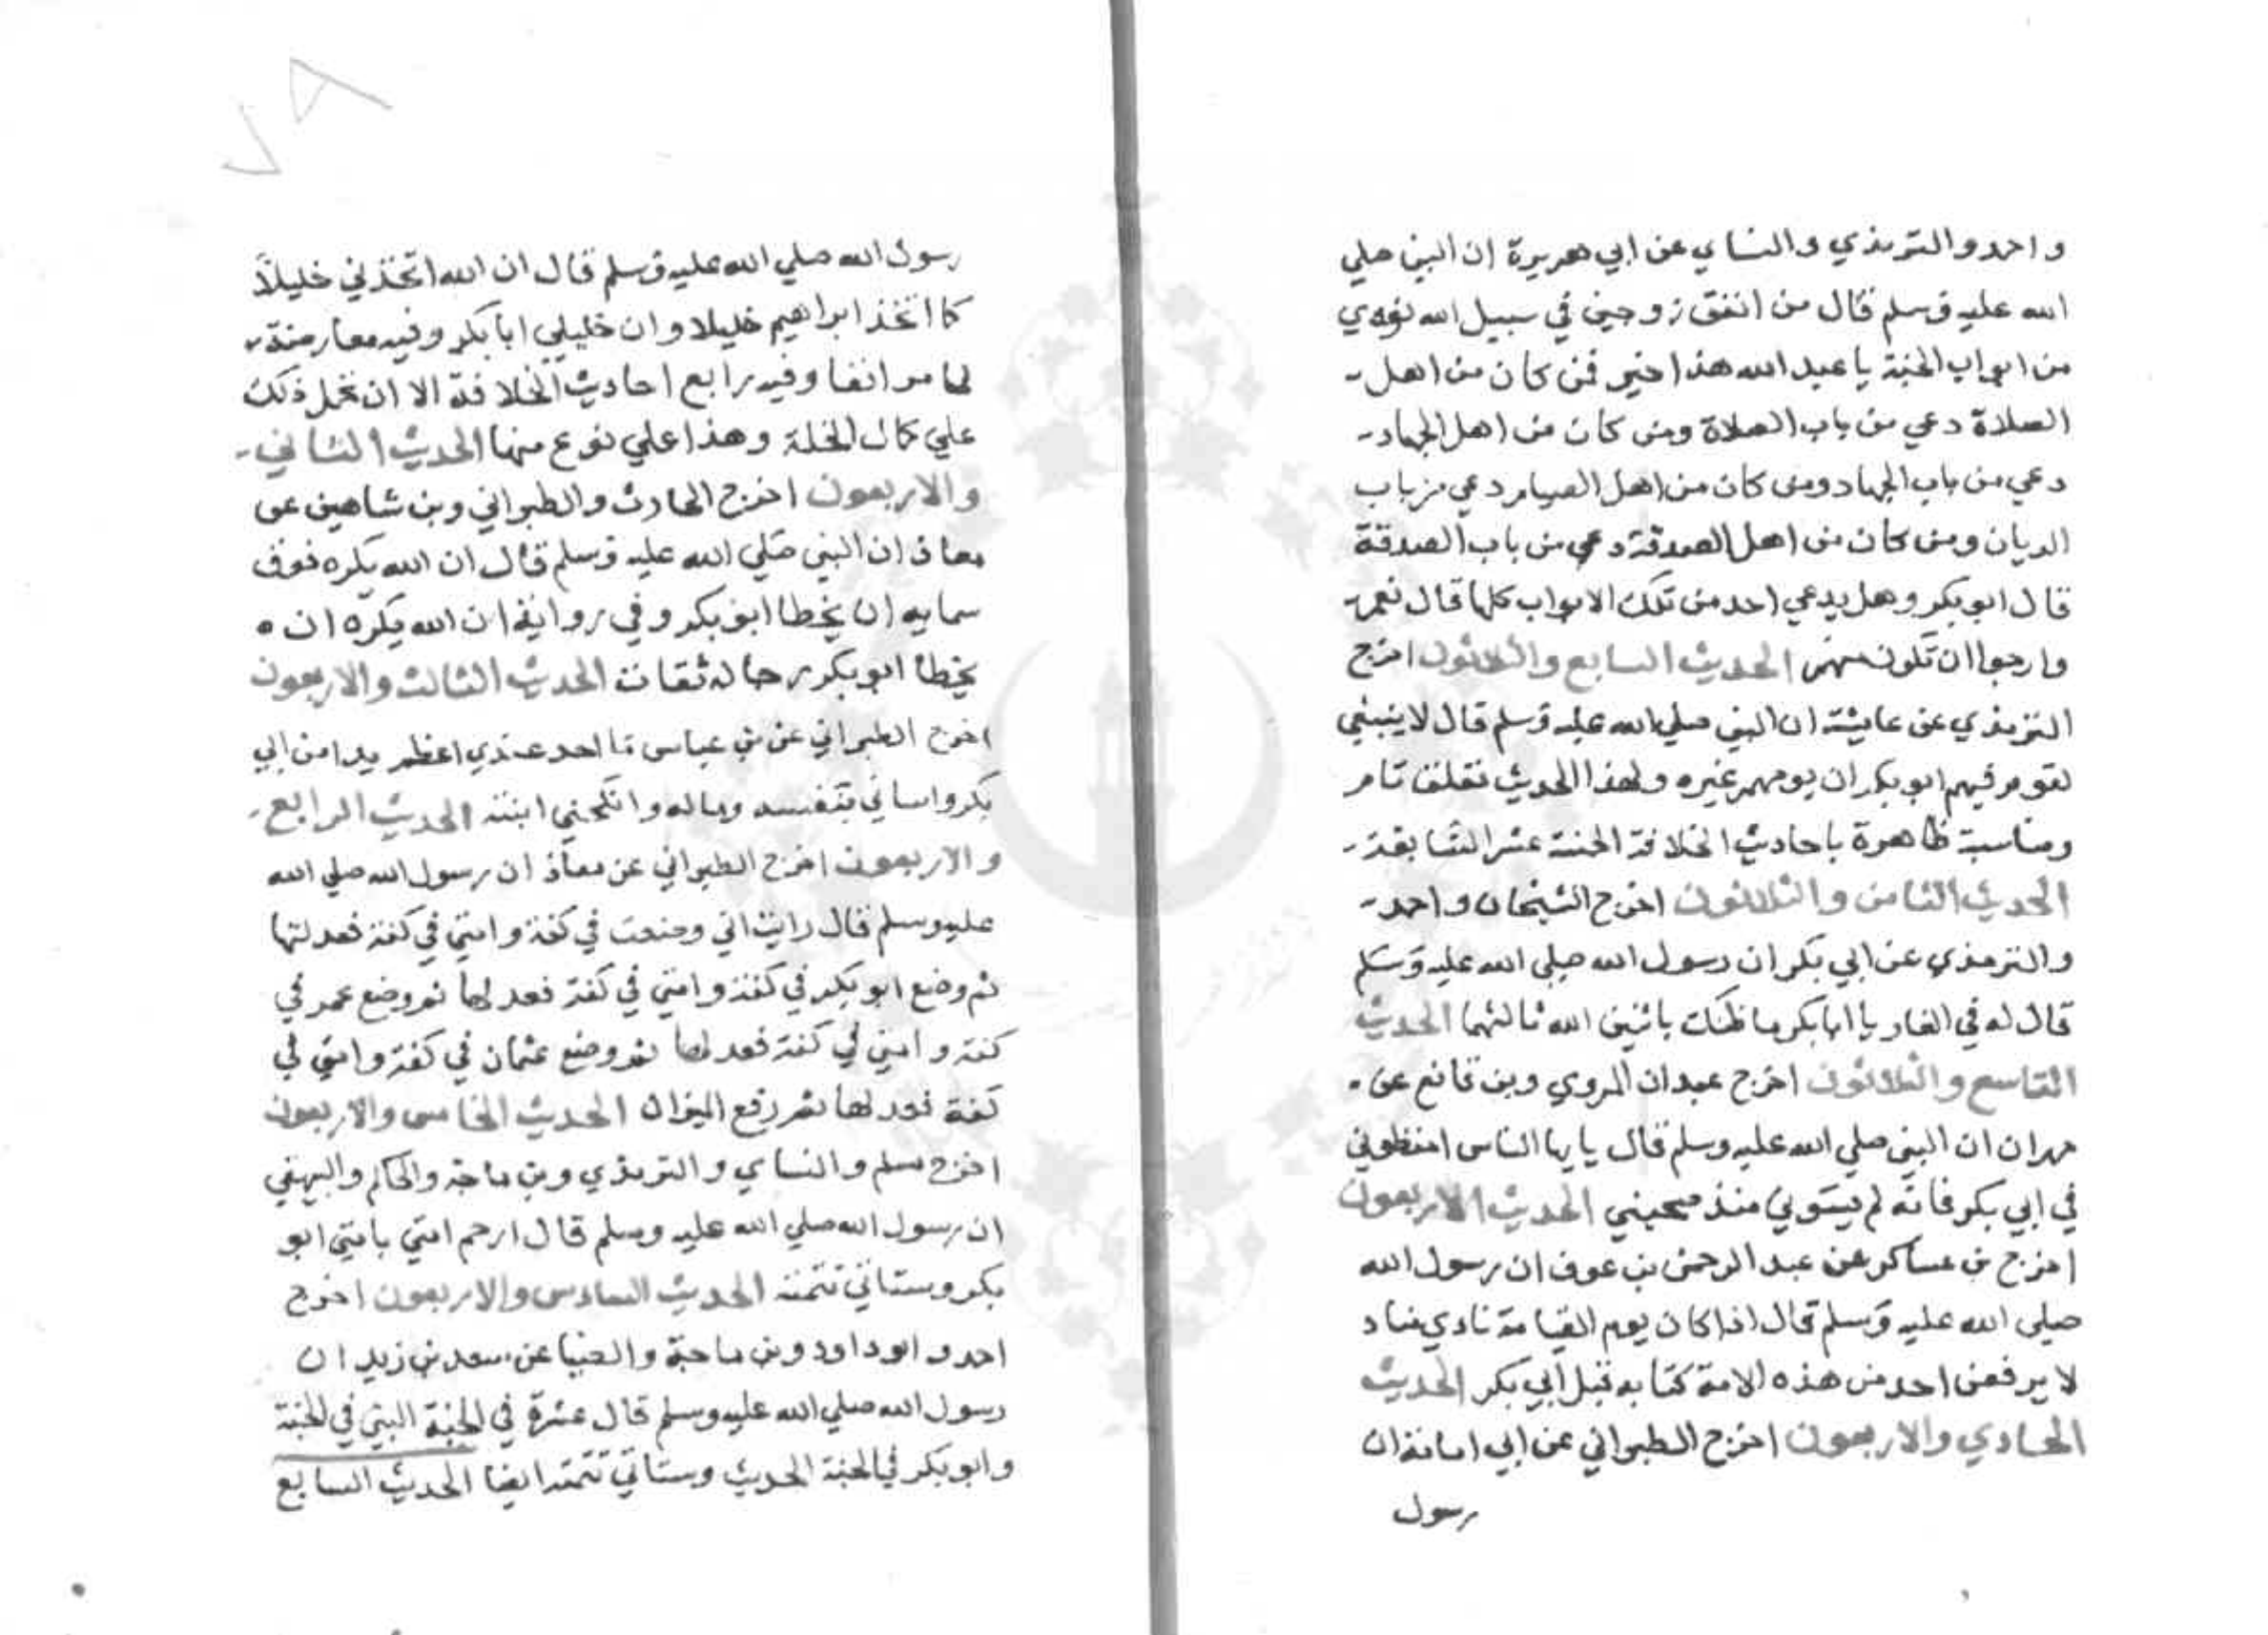 واحمد والترمذي والنساي عن ابي هريرة ان النبي صلي
الله عليه وسلم قال من انفق زوجين في سبيل الله نودي
من ابواب الجنة يا عبد الله هذا خير فمن كان من اهل
الصلاة دعي من باب الصلاة ومن كان من اهل الجهاد
دعي من باب الجهاد ومن كان من اهل الصيام دعي من باب
الريان ومن كان من اهل الصدقة دعي من باب الصدقة
قال ابو بكر وهل يدعي احد من تلك الابواب كلها قال نعم
وارجوا ان تكون منهم الحديث السابع والثلاثون اخرج
الترمذي عن عايشة ان النبي صلي الله عليه وسلم قال لا ينبغي
لقوم فيهم ابو بكر ان يومهم غيره ولهذا الحديث تعلق تام
ومناسبة ظاهرة باحاديث الخلافة الخمسة عشر السابقة
الحديث الثامن والثلاثون اخرج الشيخان واحمد
والترمذي عن ابي بكر ان رسول الله صلي الله عليه وسلم
قال له في الغار يا ابا بكر ما ظنك باثنين الله ثالثهما الحديث
التاسع والثلاثون اخرج عبدان المروي وبن قانع عن
بهران ان النبي صلي الله عليه وسلم قال يايها الناس احفظوني
في ابي بكر فانه لم يسوني منذ صحبني الحديث الاربعون
اخرج بن عساكر عن عبد الرحمن بن عوف ان رسول الله
صلي الله عليه وسلم قال اذا كان يوم القيامة نادي مناد
لا يرفعن احد من هذه الامة كتابه قبل ابي بكر الحديث
الحادي والاربعون اخرج الطبراني عن ابي امامة ان
رسول
٧٨
رسول الله صلي الله عليه وسلم قال ان الله اتخذني خليلاً
كما اتخذ ابراهيم خليلا وان خليلي ابا بكر وفيه معارضة
لما مر انفا وفيه رابع احاديث الخلافة الا ان تحمل ذلك
علي كمال الخلة وهذا علي نوع منها الحديث الثاني
والاربعون اخرج الحارث والطبراني وبن شاهين عن
معاذ ان النبي صلي الله عليه وسلم قال ان الله يكره فوق
سمايه ان يخطا ابو بكر وفي رواية ان الله يكره ان
يخطا ابو بكر رجاله ثقات الحديث الثالث والاربعون
اخرج الطبراني عن بن عباس ما احد عندي اعظم يدا من ابي
بكر واساني بنفسه وماله وانكحني ابنته الحديث الرابع
والاربعون اخرج الطبراني عن معاذ ان رسول الله صلي الله
عليه وسلم قال رايت اني وضعت في كفة وامتي في كفة فعدلتها
ثم وضع ابو بكر في كفة وامتي في كفة فعدلها ثم وضع عمر في
كفة وامتي في كفة فعدلها ثم وضع عثمان في كفة وامتي في
كفة فعدلها ثم رفع الميزان الحديث الخامس والاربعون
اخرج مسلم والنساي والترمذي وبن ماجة والحاكم والبيهقي
ان رسول الله صلي الله عليه وسلم قال ارحم امتي بامتي ابو
بكر وستاتي تتمته الحديث السادس والاربعون اخرج
احمد وابو داود وبن ماجة والضيا عن سعد بن زيد ان
رسول الله صلي الله عليه وسلم قال عشرة في الجنة النبي في الجنة
وابو بكر في الجنة الحديث وستاتي تتمته ايضا الحديث السابع